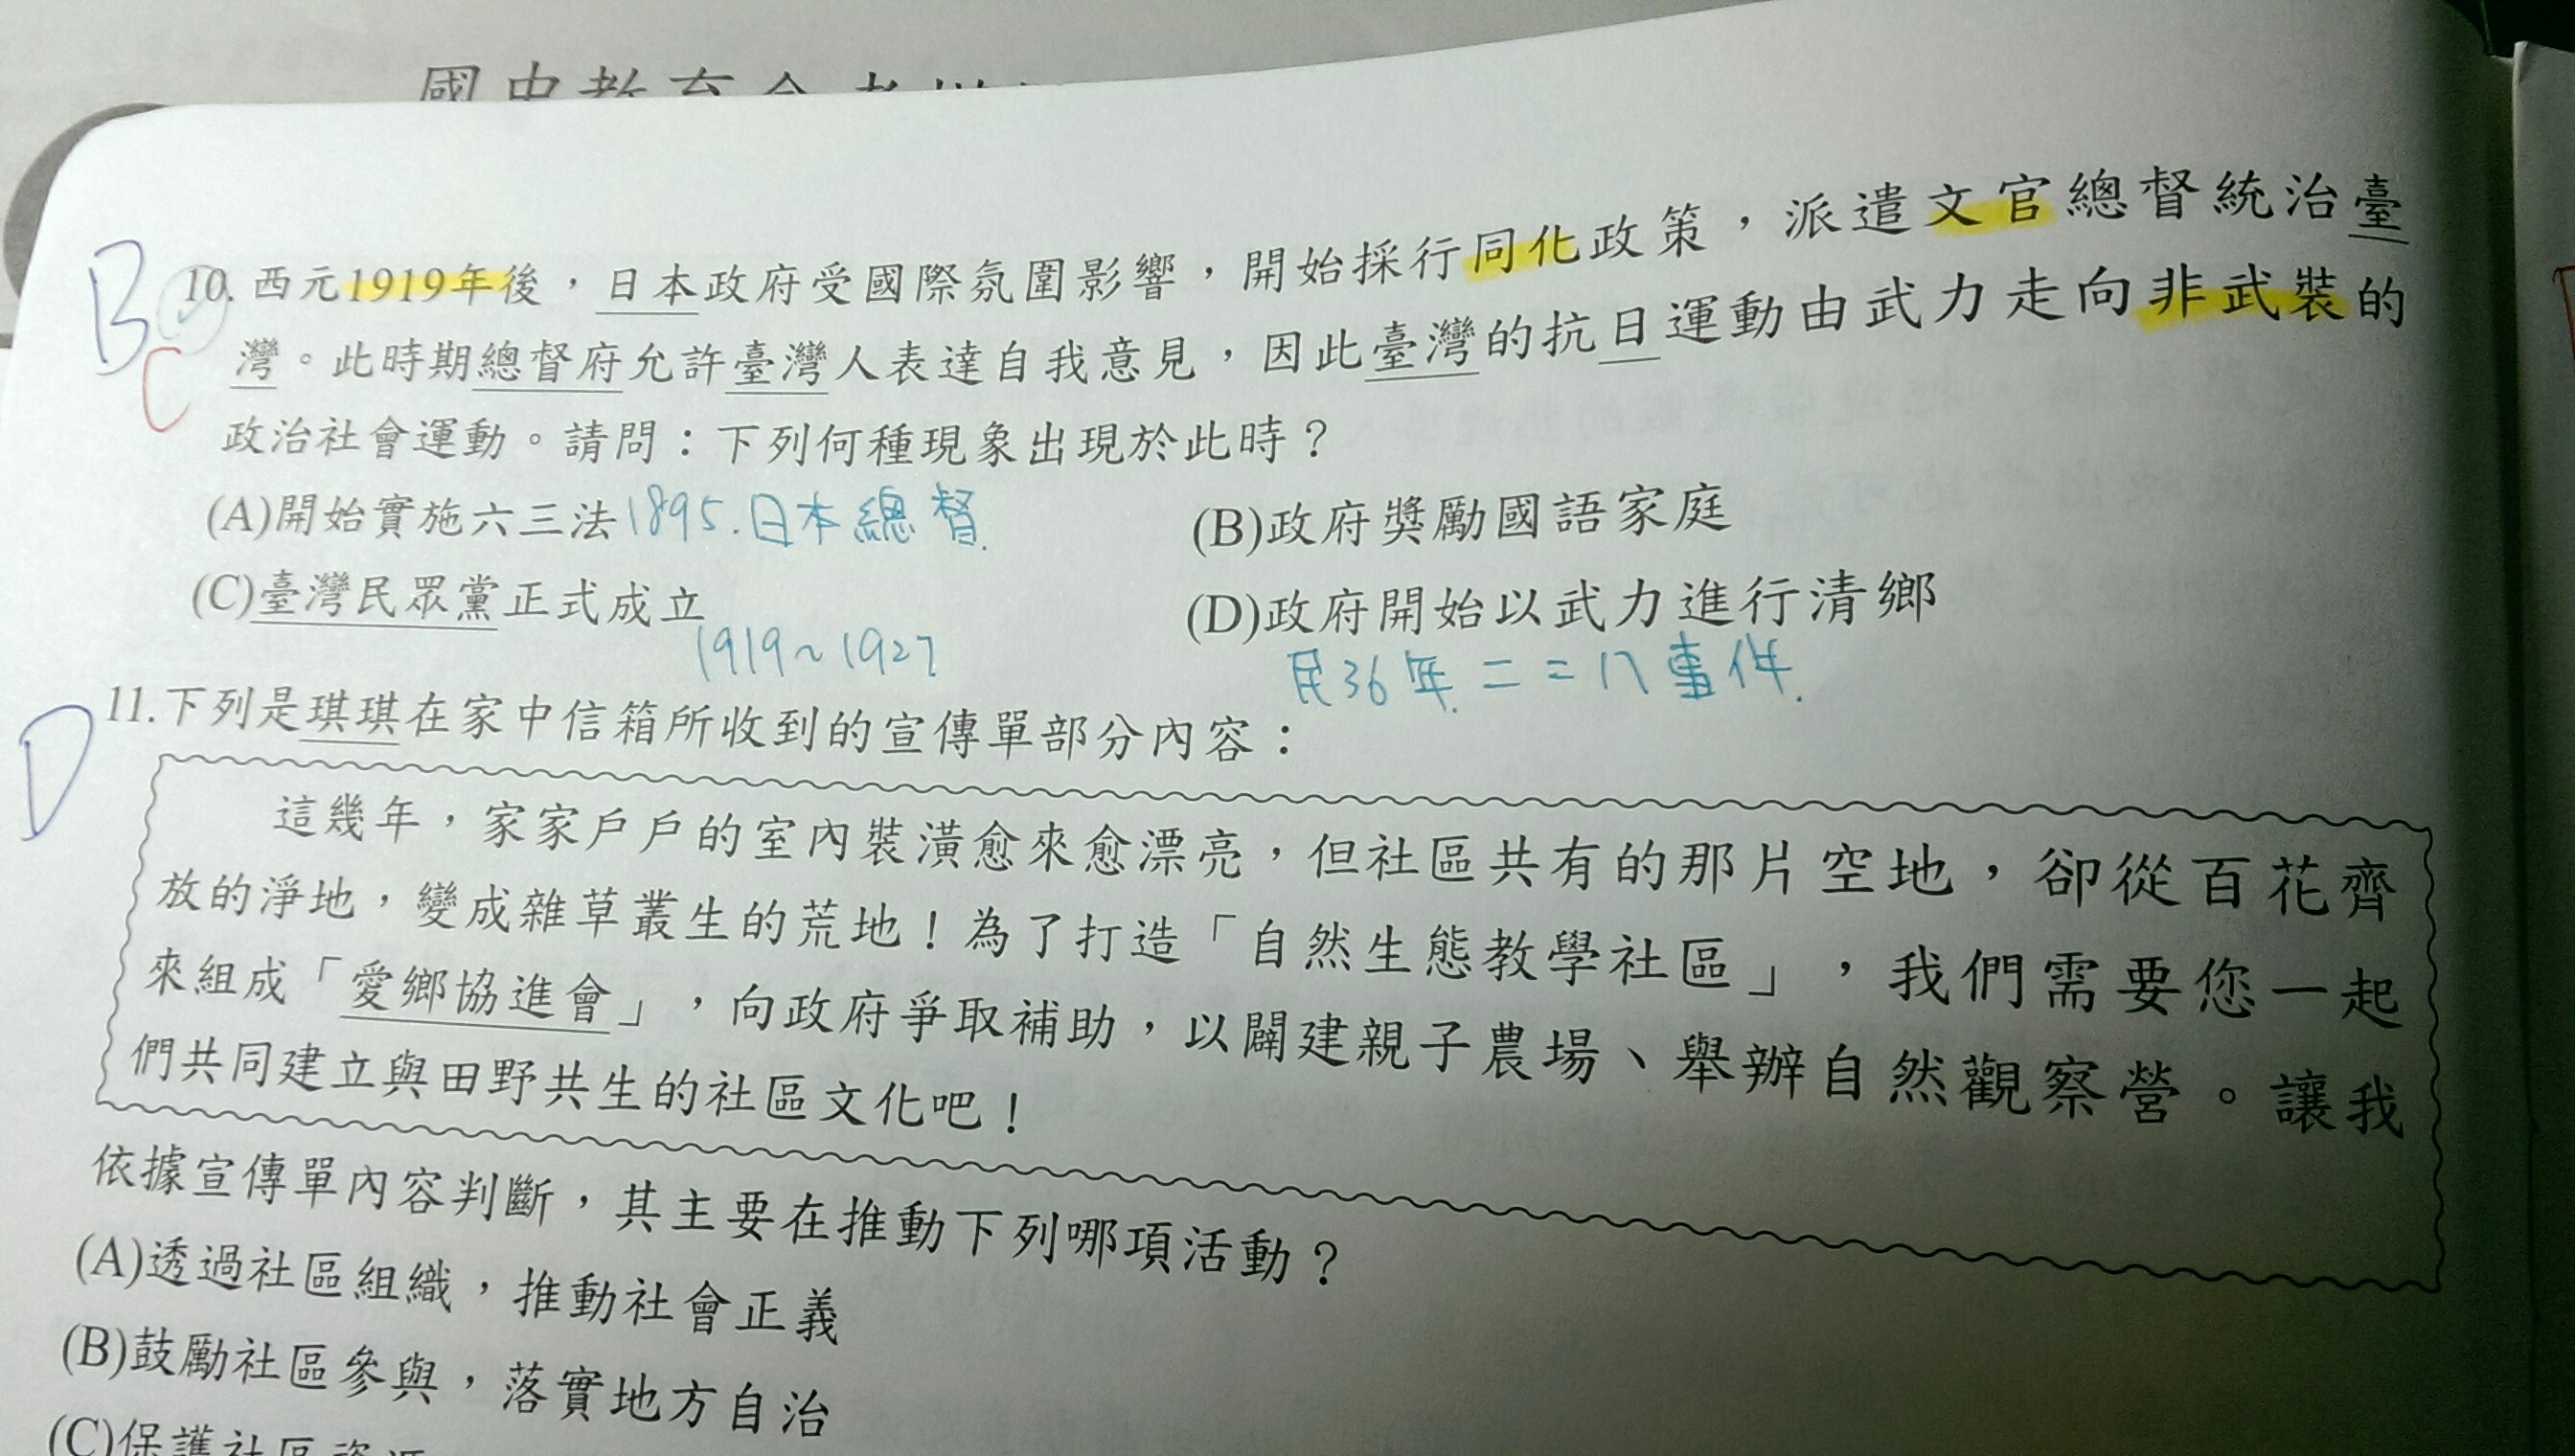 國中教育會考
B
C
10. 西元1919年後，日本政府受國際氛圍影響，開始採行同化政策，派遣文官總督統治臺
灣。此時期總督府允許臺灣人表達自我意見，因此臺灣的抗日運動由武力走向非武裝的
政治社會運動。請問：下列何種現象出現於此時？
(A)開始實施六三法 1895.日本總督. (B)政府獎勵國語家庭
(C)臺灣民眾黨正式成立 (D)政府開始以武力進行清鄉
1919~1927 民36年.二二八事件.
D
11.下列是琪琪在家中信箱所收到的宣傳單部分內容：
這幾年，家家戶戶的室內裝潢愈來愈漂亮，但社區共有的那片空地，卻從百花齊
放的淨地，變成雜草叢生的荒地！為了打造「自然生態教學社區」，我們需要您一起
來組成「愛鄉協進會」，向政府爭取補助，以闢建親子農場、舉辦自然觀察營。讓我
們共同建立與田野共生的社區文化吧！
依據宣傳單內容判斷，其主要在推動下列哪項活動？
(A)透過社區組織，推動社會正義
(B)鼓勵社區參與，落實地方自治
(C)保護社區資源